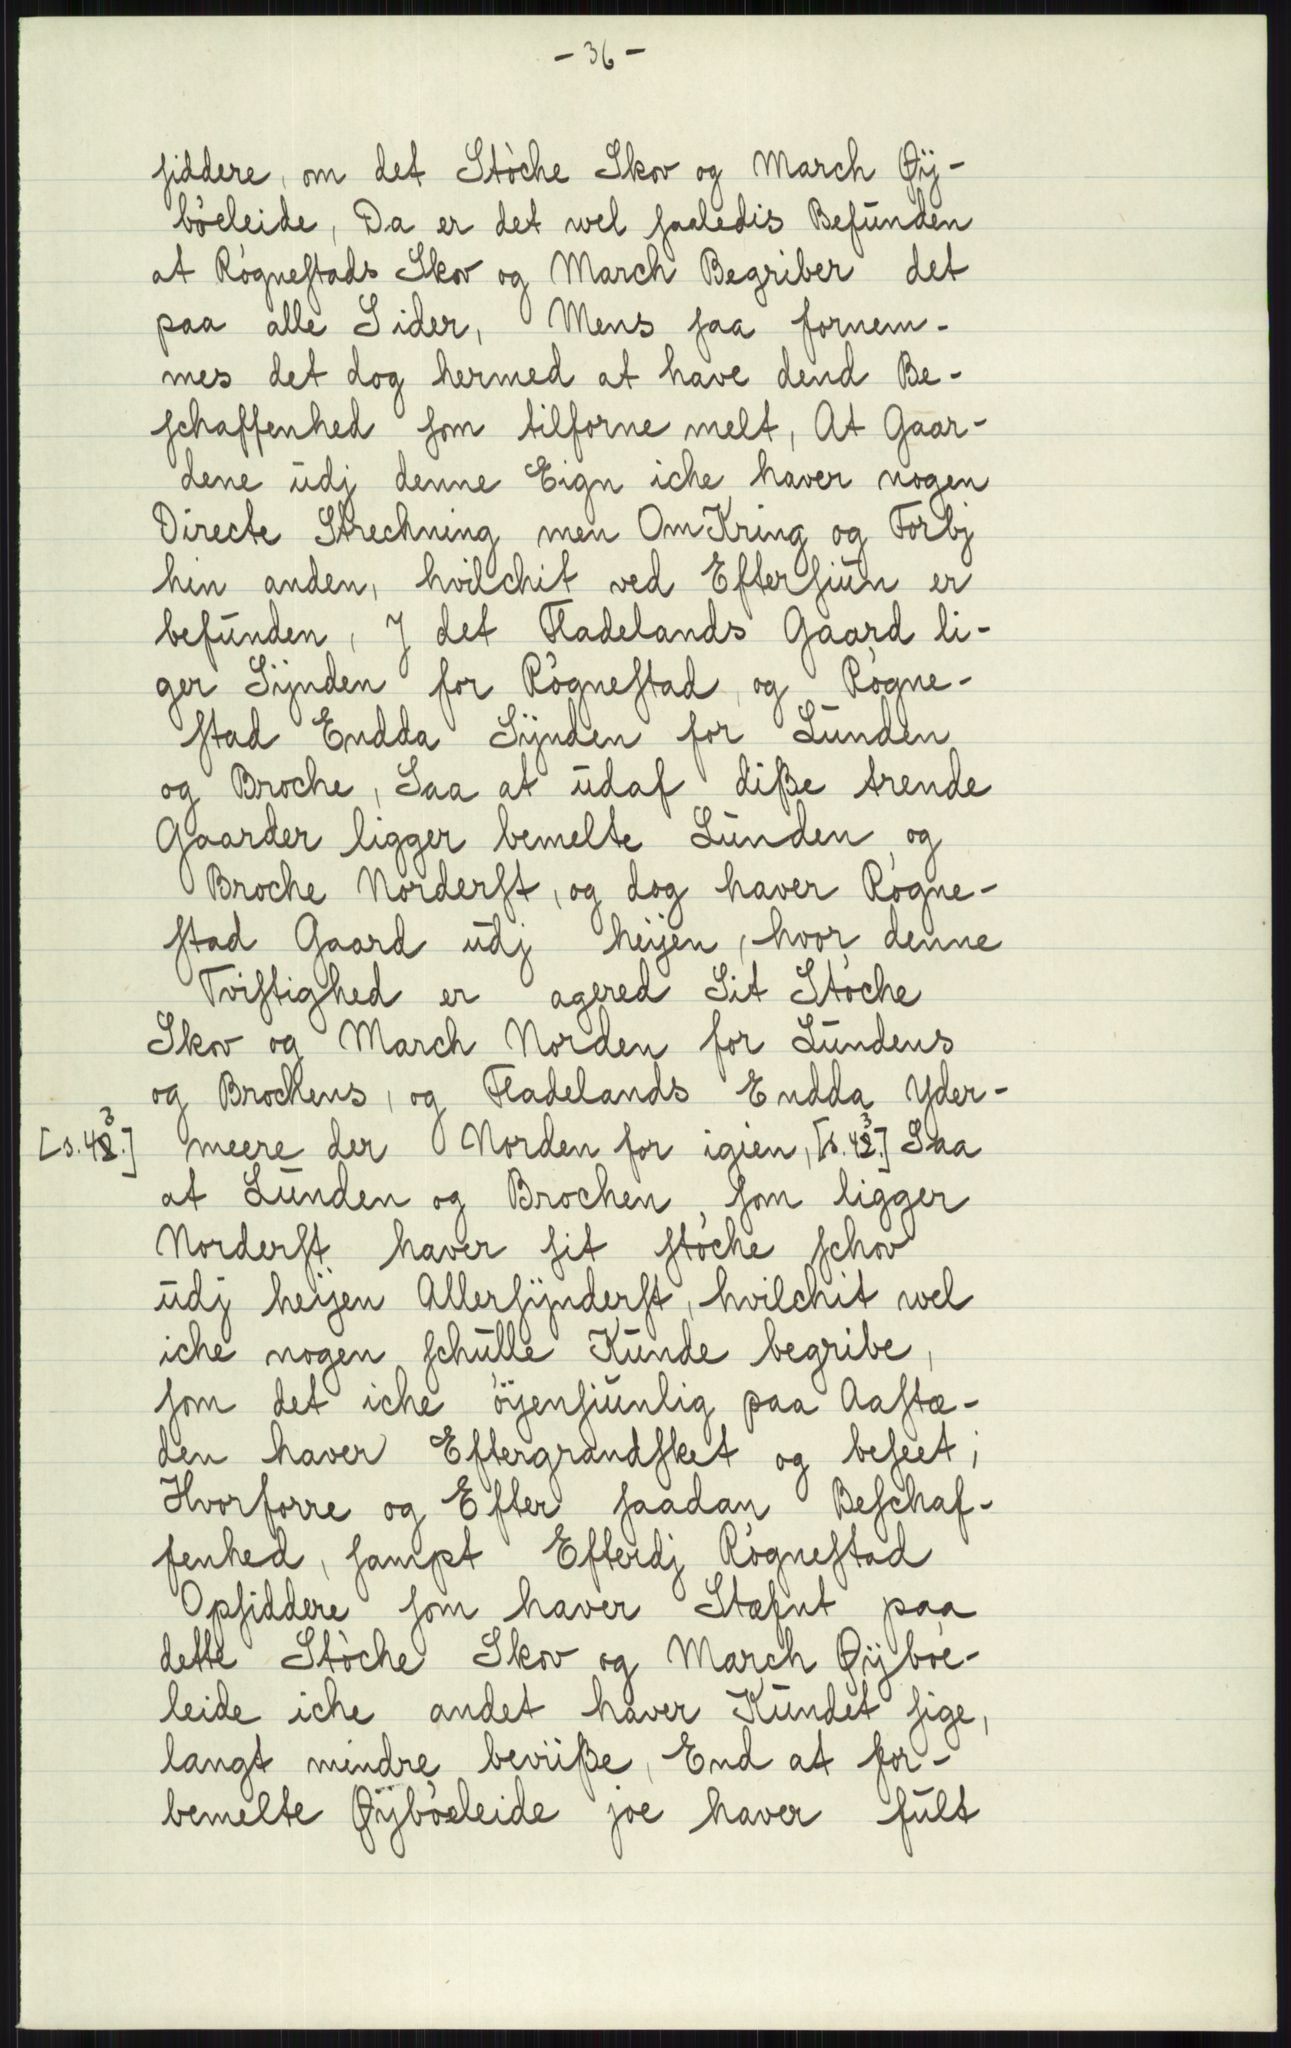 - 36 -
siddere, om det Støche Skov og March Øÿ-
bøeleide, Da er det wel saaledis Befunden
at Røgnestads Skov og March Begriber det
paa alle Sider, Mens saa fornem-
mes det dog hermed at have dend Be-
schaffenhed som tilforne melt, At Gaar-
dene udj denne Eign iche haver nogen
Directe Strechning men OmKring og Forbj
hin anden, hvilchit ved Eftersiun er
befunden, J det Fladelands Gaard li-
ger Sÿnden for Røgnestad, og Røgne-
stad Endda Sÿnden for Lunden
og Broche, Saa at udaf diße trende
Gaarder ligger bemelte Lunden og
Broche Norderst, og dog haver Røgne-
stad Gaard udj heijen, hvor denne
Tvistighed er agered Sit Støche
Skov og March Norden for Lundens
og Brochens, og Fladelands Endda Yder-
[s. 43.] meere der Norden for igien, [s. 43.] Saa
at Lunden og Brochen, som ligger
Norderst haver sit støche schov
udj heijen Allersÿnderst, hvilchit wel
iche nogen schulle Kunde begribe,
som det iche öÿensiunlig paa Aastæ-
den haver Eftergrandsket og beseet;
Hvorforre og Efter saadan Beschaf-
fenhed, sampt Efterdj Røgnestad
Opsiddere som haver Stæfnt paa
dette Støche Skov og March Øÿbøe-
leide iche andet haver Kundet sige,
langt mindre beviiße, End at for-
bemelte Øÿbøeleide joe haver fult